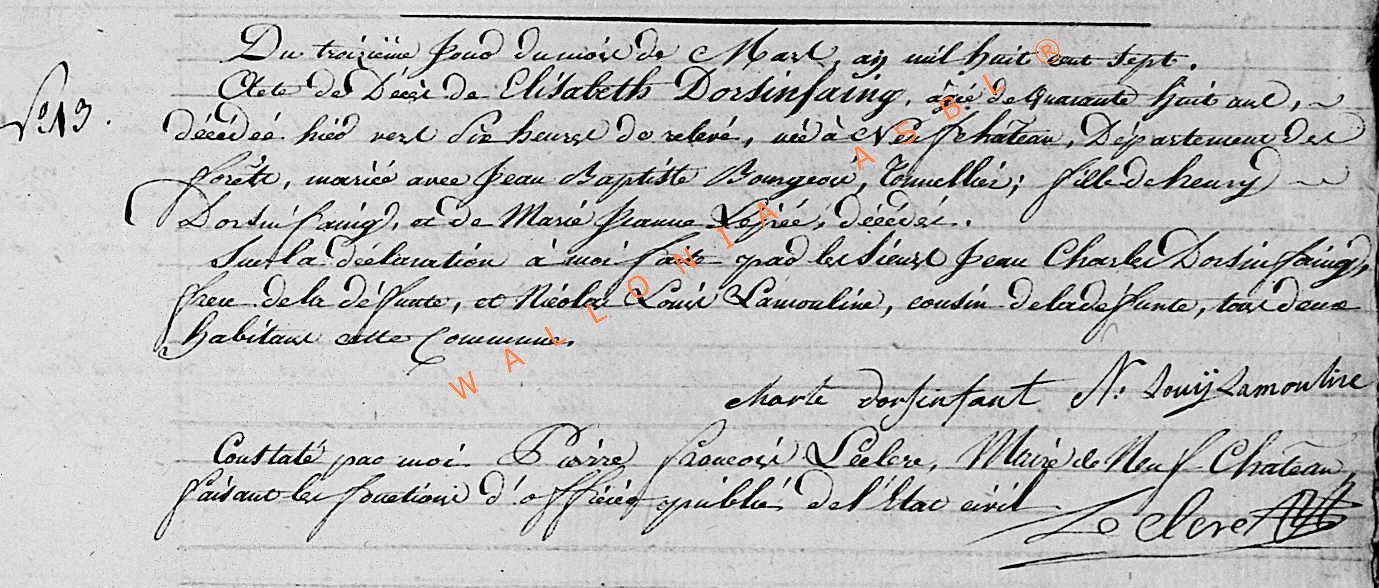 Du troizième Jour du mois de Mars, an mil huit cent sept.
N.º 13.
Acte de Décès de Elisabeth Dorsinfaing, âgée de Quarante huit ans,
décédée hier vers Six heures de relevé, née à Neufchateau, Departement des
forêts, mariée avec Jean Baptiste Bourgeois, Tonnellier; fille de henry
Dorsinfaing, et de Marie Jeanne décédés.
Sur la déclaration à moi faite par les Sieurs Jean Charles Dorsinfaing,
frere de la défunte, et Nicolas Louis Lamouline, cousin de la defunte, tous deux
habitans cette Commune.
charle dorsinfant N. Louÿ Lamouline
Constaté par moi Pierre françois Leclere, Maire de Neuf-Chateau,
faisant les fonctions d'officier public de l'Etat civil
Leclere
WALLONIA ASBL ®